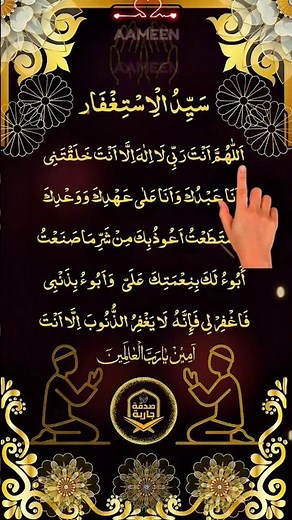 AAMEEN
سَيِّدُ الْاِسْتِغْفَار
اَللّٰهُمَّ اَنْتَ رَبِّيْ لَا اِلٰهَ اِلَّا اَنْتَ خَلَقْتَنِى
نَا عَبْدُكَ وَاَنَا عَلٰى عَهْدِكَ وَوَعْدِكَ
سْتَطَعْتُ اَعُوْذُ بِكَ مِنْ شَرِّ مَا صَنَعْتُ
أَبُوْءُ لَكَ بِنِعْمَتِكَ عَلَىَّ وَاَبُوْءُ بِذَنْبِى
فَاغْفِرْ لِى فَاِنَّهُ لَا يَغْفِرُ الذُّنُوبَ اِلَّا اَنْتَ
اٰمِيْن يَارَبَّ الْعَالَمِيْن
صدقة
جارية